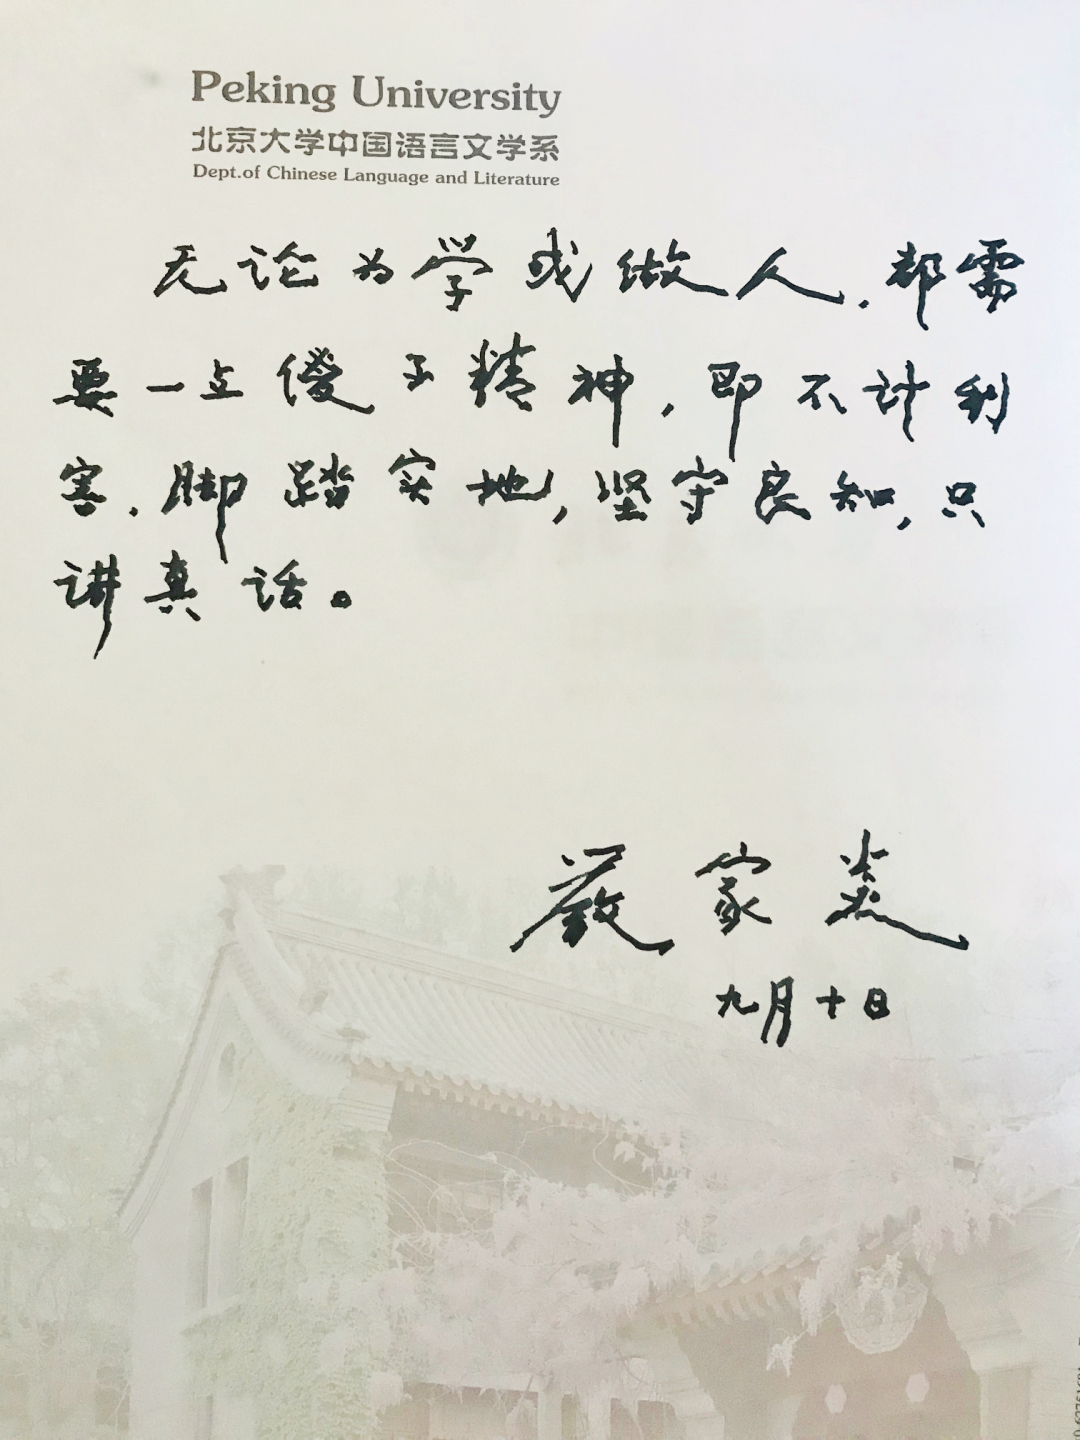 Peking University
北京大学中国语言文学系
Dept.of Chinese Language and Literature
无论为学或做人，都需
要一点傻子精神，即不计利
害，脚踏实地，坚守良知，只
讲真话。
严家炎
九月十日